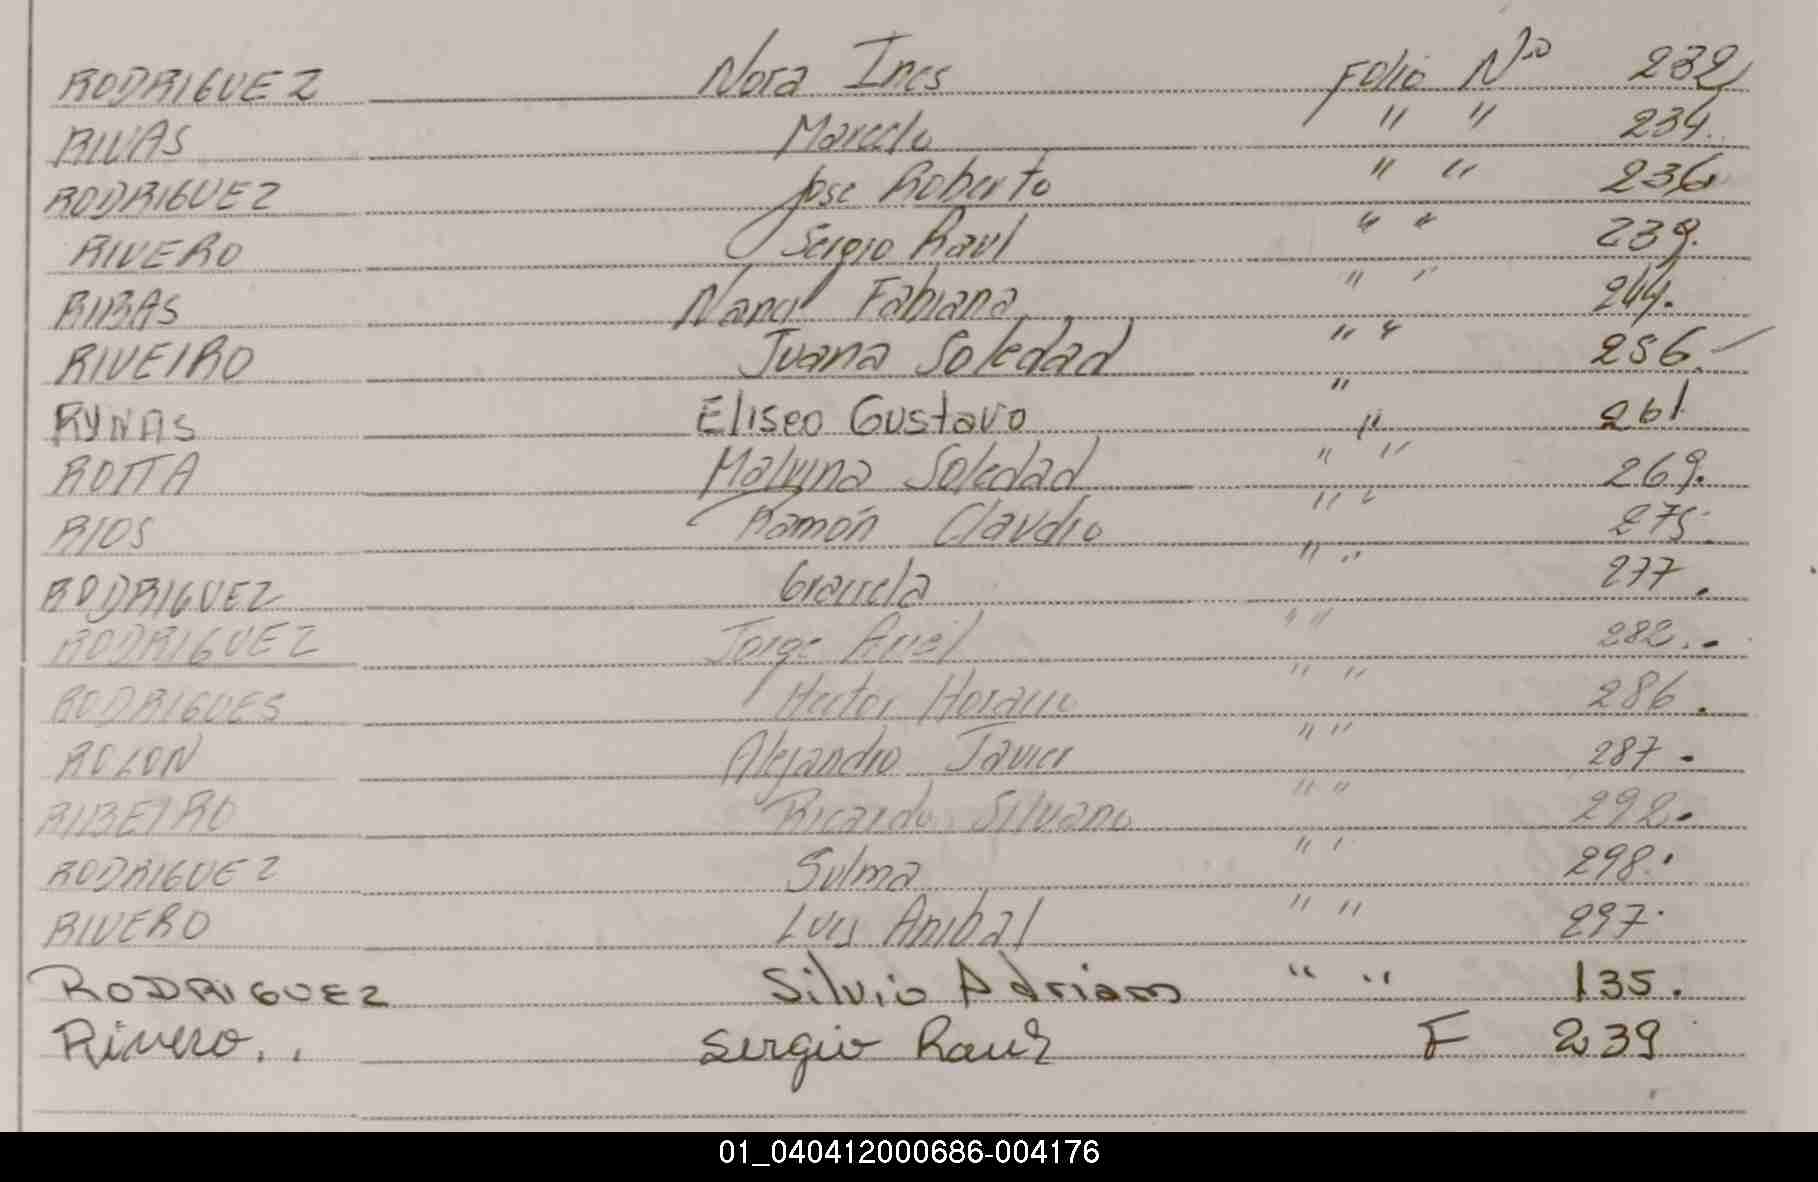 RODRIGUEZ Nora Ines Folio Nº 232
RIVAS Marcelo " " 234.
RODRIGUEZ Jose Roberto " " 236
RIVERO Sergio Raul " " 239.
RIBAS Nanci Fabiana " " 244.
RIVEIRO Juana Soledad " " 256.
RYNAS Eliseo Gustavo " " 261
ROTTA Malvina Soledad " " 269.
RIOS Ramón Claudio " " 275.
RODRIGUEZ Graciela " " 277.
RODRIGUEZ Jorge Ariel " " 282..
RODRIGUES Hector Horacio " " 286.
ROLON Alejandro Javier " " 287.
RIBEIRO Ricardo Silvano " " 292.
RODRIGUEZ Sulma " " 298.
RIVERO Luis Anibal " " 297.
RODRIGUEZ Silvio Adrian " " 135.
Rivero.. Sergio Raul F 239
01_040412000686-004176